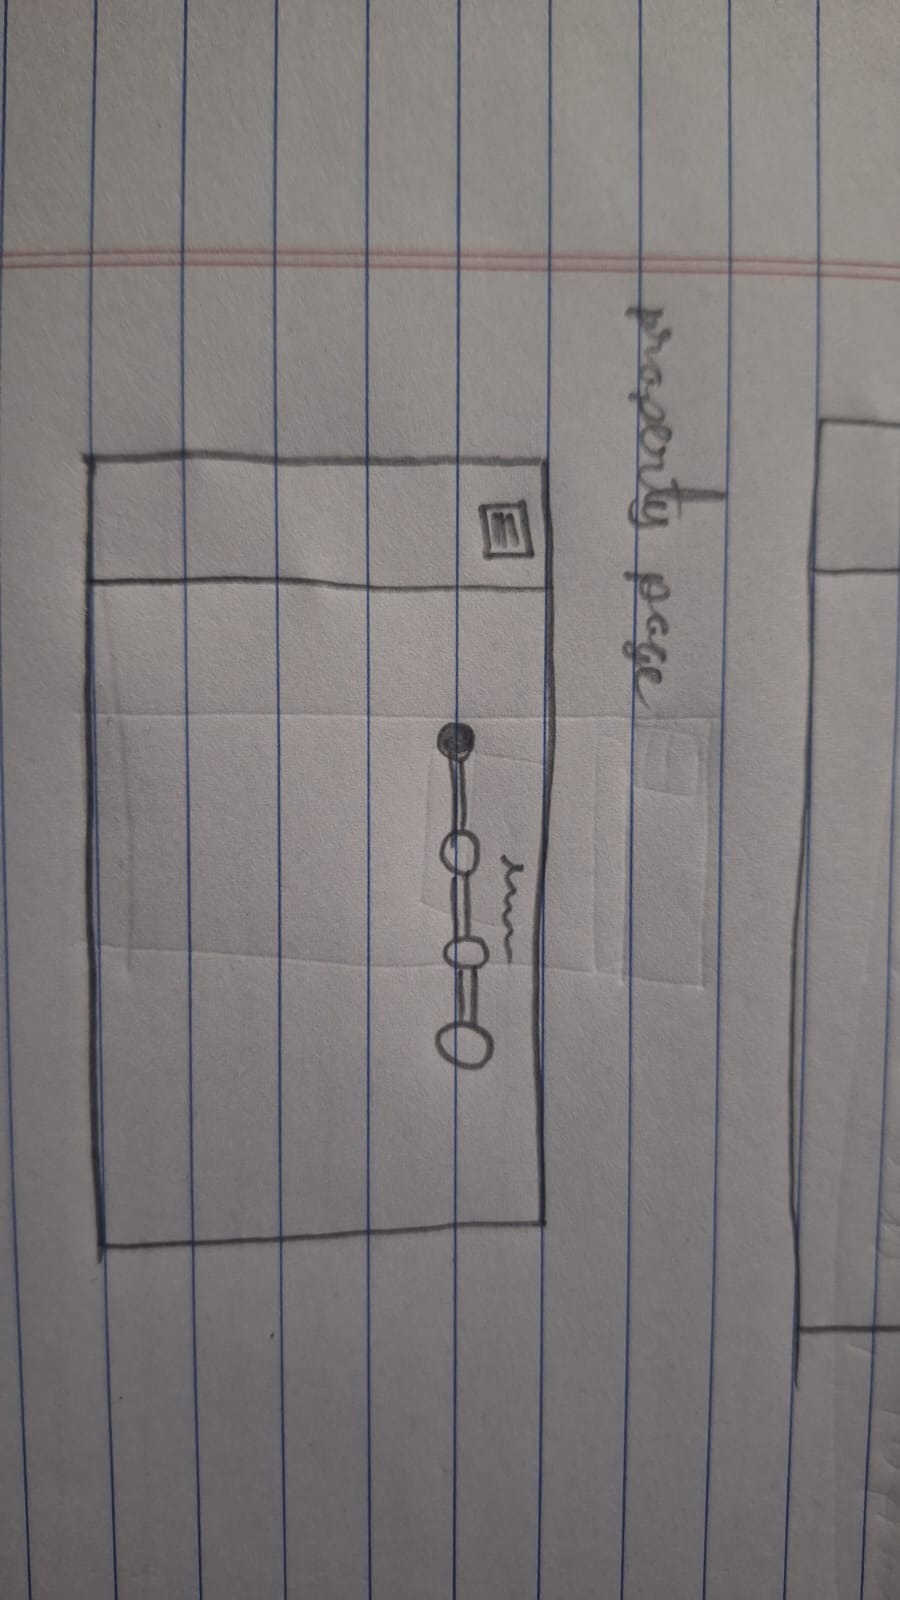 property page